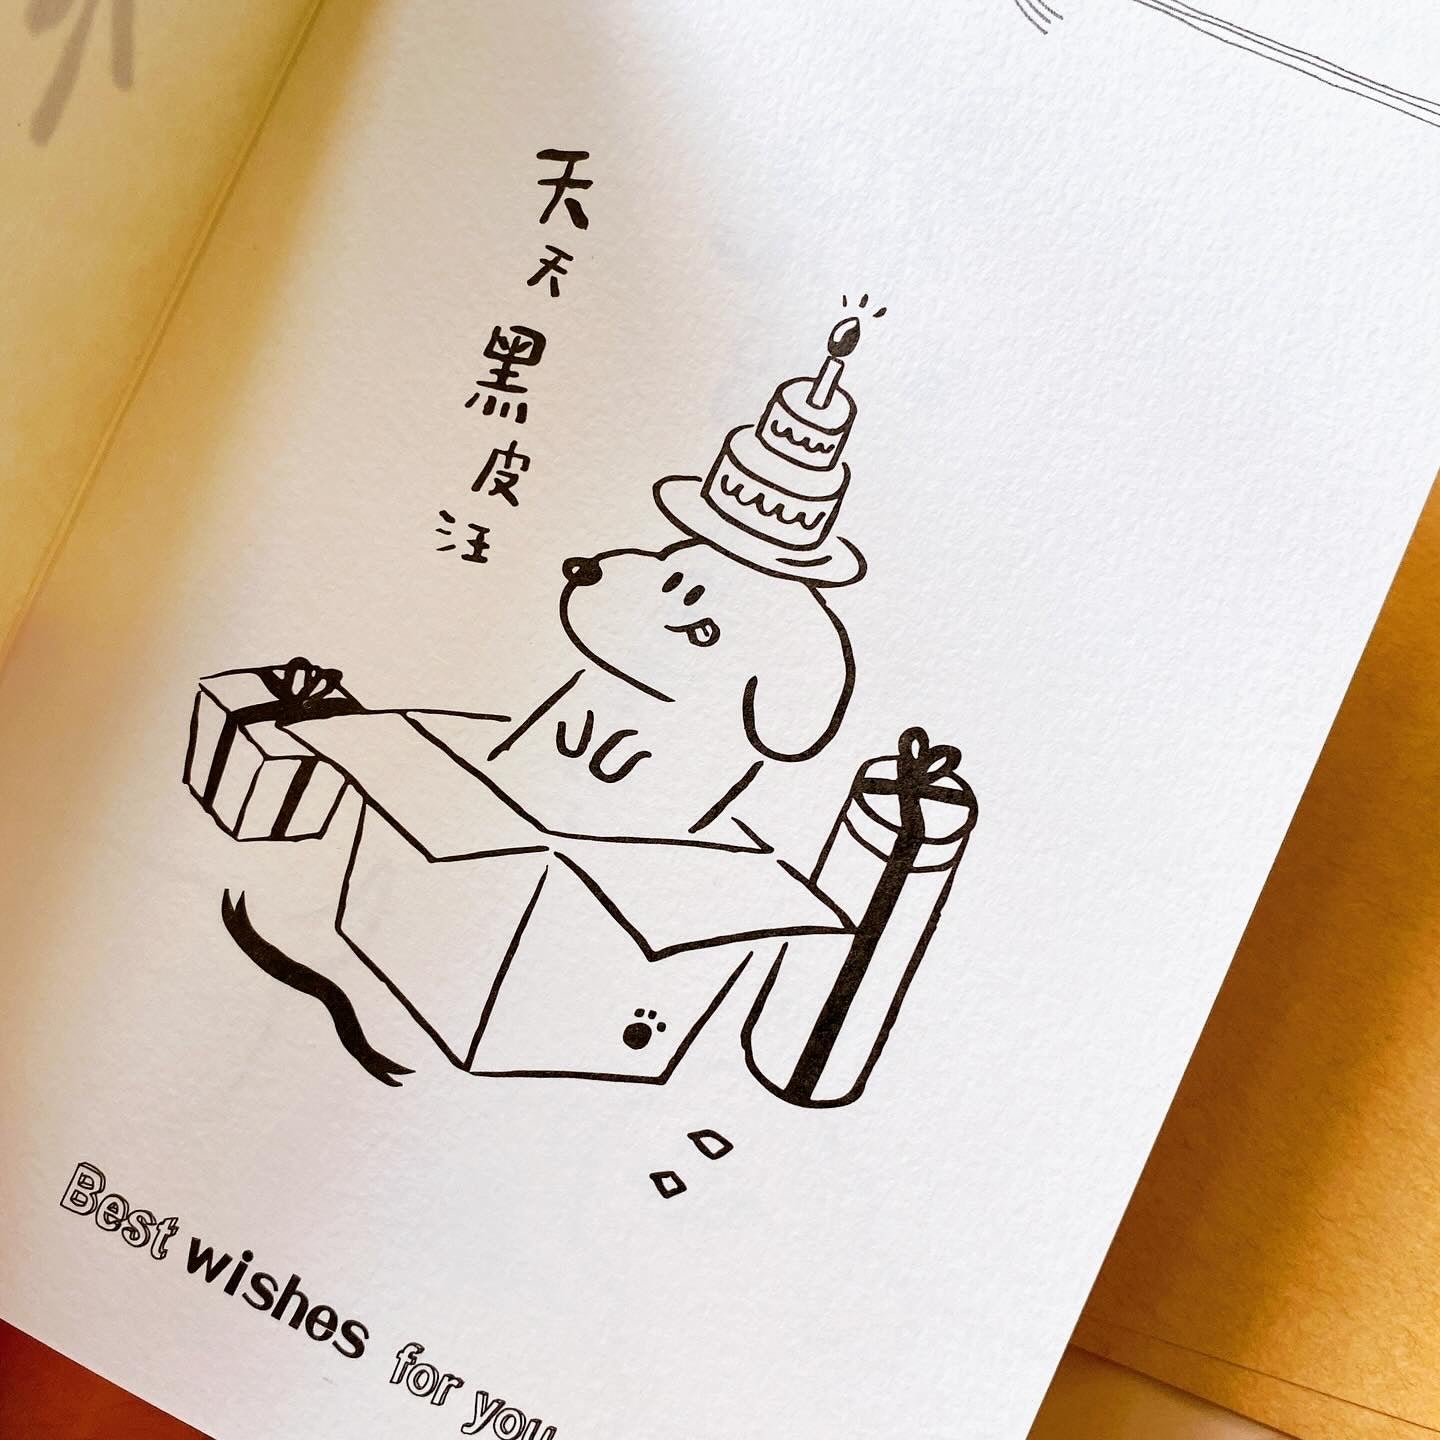 天天黑皮汪
Best wishes for you